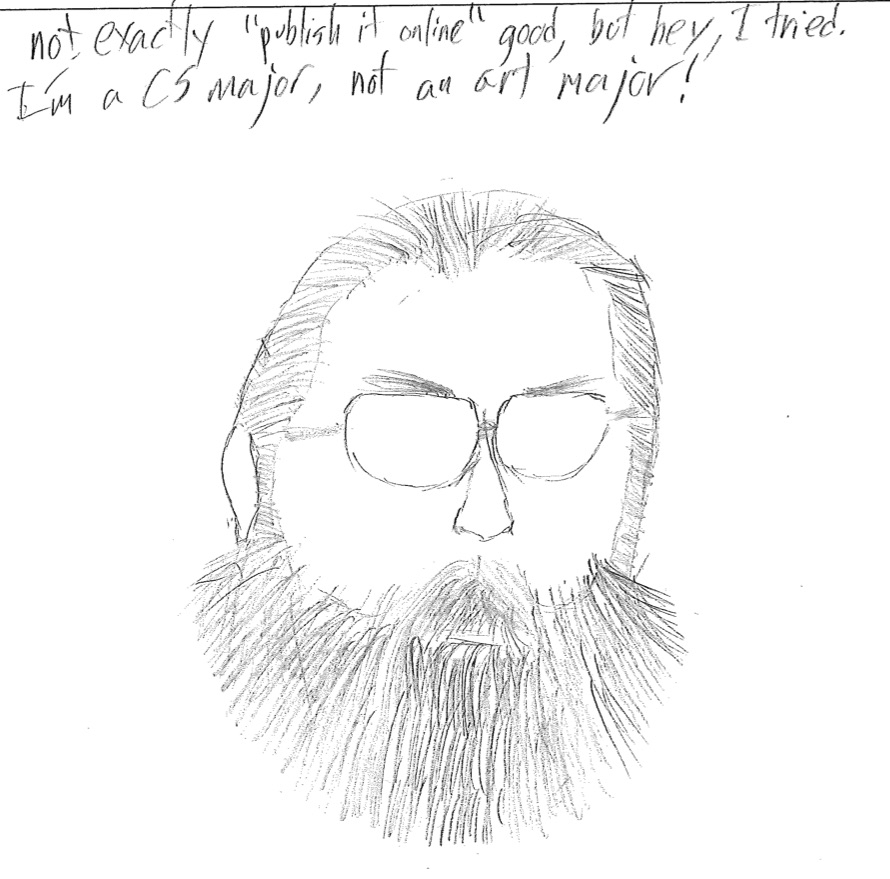 not exactly "publish it online" good, but hey, I tried.
I'm a CS major, not an art major!